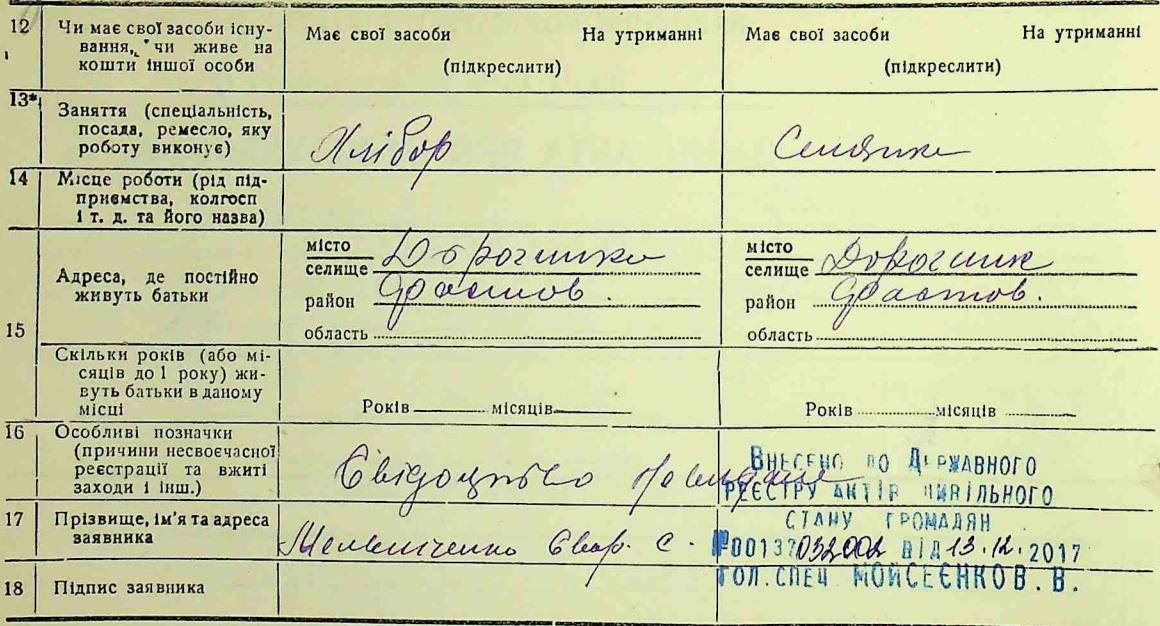 12 Чи має свої засоби існу-
вання, чи живе на
кошти іншої особи
Має свої засоби На утриманні
(підкреслити)
Має свої засоби На утриманні
(підкреслити)
13* Заняття (спеціальність,
посада, ремесло, яку
роботу виконує)
Хлібор
14 Місце роботи (рід під-
приємства, колгосп
і т. д. та його назва)
15 Адреса, де постійно
живуть батьки
місто
селище Дорогинка
район Фастов.
область
місто
селище Дорогинк
район Фастов.
область
Скільки років (або мі-
сяців до 1 року) жи-
вуть батьки в даному
місці
Років місяців
Років місяців
16 Особливі позначки
(причини несвоєчасної
реєстрації та вжиті
заходи і інш.)
Свідоцтво
17 Прізвище, ім'я та адреса
заявника
Мельниченко Євар. С.
18 Підпис заявника
ВНЕСЕНО ДО ДЕРЖАВНОГО
РЕЄСТРУ АКТІВ ЦИВІЛЬНОГО
СТАНУ ГРОМАДЯН
№00137032002 ВІД 13.12.2017
ГОЛ.СПЕЦ МОЙСЕЄНКО В.В.